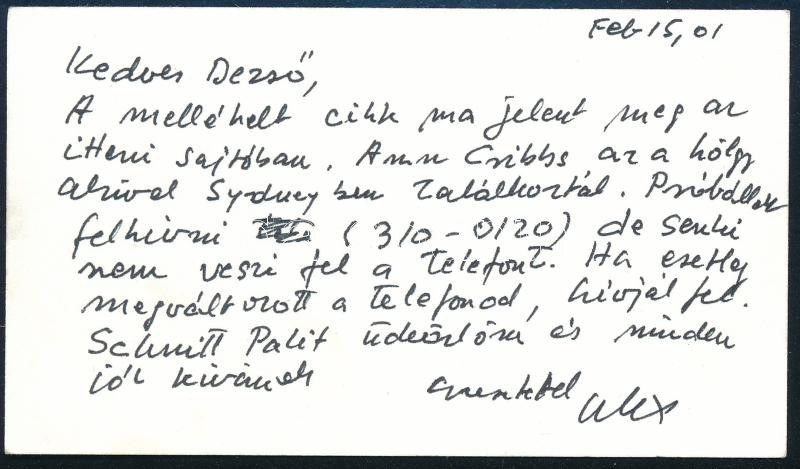 Feb 15, 01
Kedves Dezső,
A mellékelt cikk ma jelent meg az
itteni sajtóban. Ann Cribbs az a hölgy
akivel Sydneyben találkoztál. Próbállak
felhivni (310-0120) de senki
nem veszi fel a telefont. Ha esetleg
megváltozott a telefonod, hivjál fel.
Schmitt Palit üdvözlöm és minden
jót kivánok
szeretettel
Alex